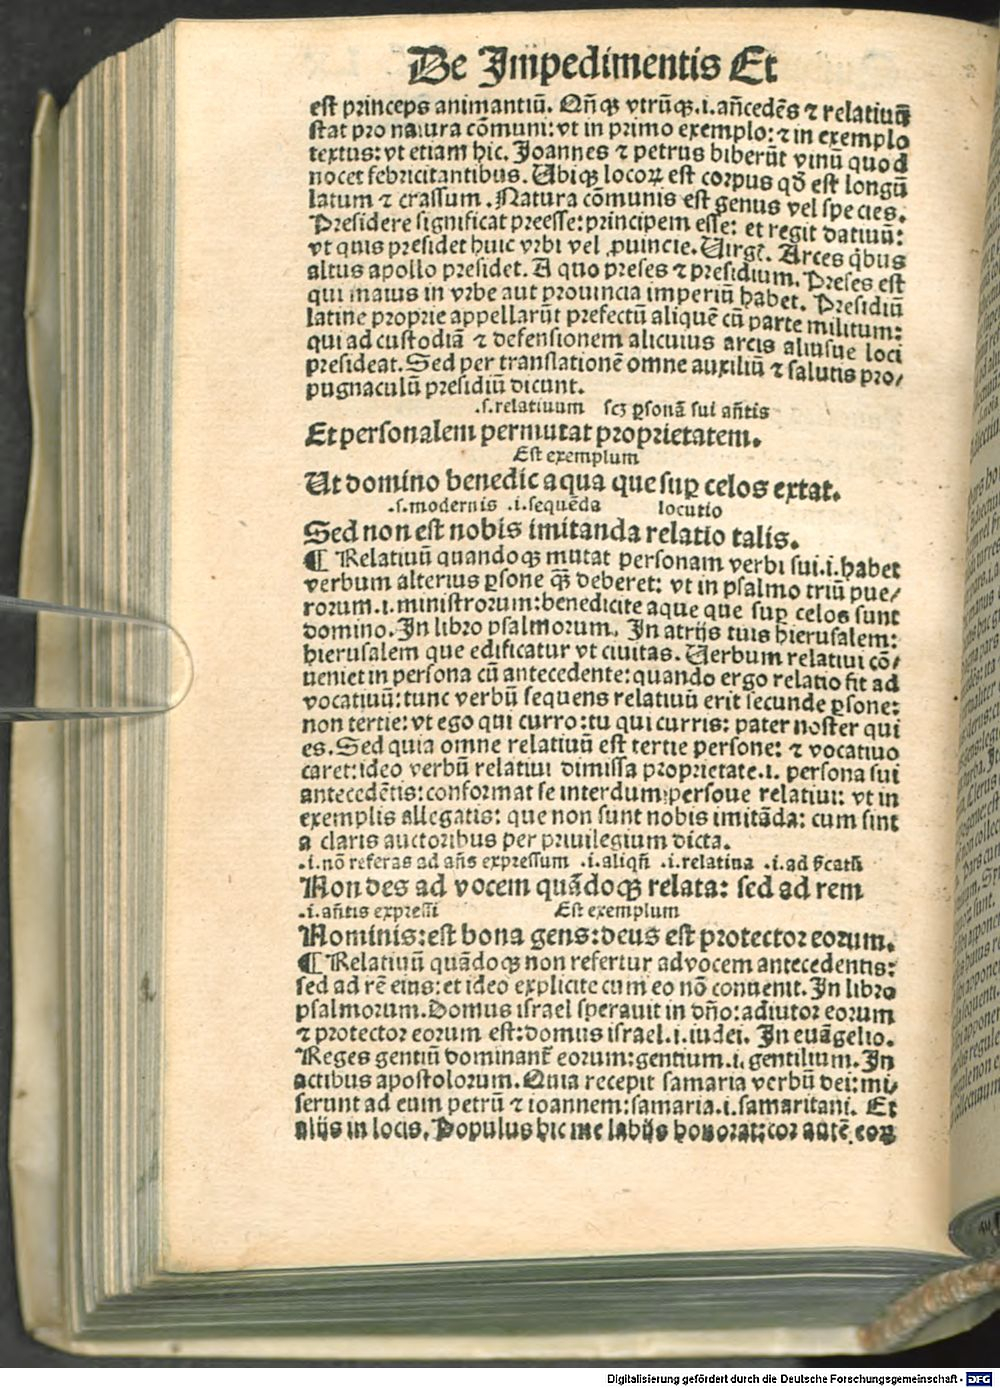 De Impedimentis Et
est princeps animantiũ. Qñqꝫ vtrũqꝫ .i. añcedẽs ⁊ relatiuũ
stat pro natura cõmuni: vt in primo exemplo: ⁊ in exemplo
textus: vt etiam hic. Joannes ⁊ petrus biberũt vinũ quod
nocet febricitantibus. Ubiqꝫ locoꝝ est corpus qd̃ est longũ
latum ⁊ crassum. Natura cõmunis est genus vel species.
Presidere significat preesse: principem esse: et regit datiuũ:
vt quis presidet huic vrbi vel ꝓuincie. Uirgĩ. Arces q̃bus
altus apollo presidet. A quo preses ⁊ presidium. Preses est
qui maius in vrbe aut prouincia imperiũ habet. Presidiũ
latine proprie appellarũt prefectũ aliquẽ cũ parte militum:
qui ad custodiã ⁊ defensionem alicuius arcis aliusue loci
presideat. Sed per translationẽ omne auxiliũ ⁊ salutis pro/
pugnaculũ presidiũ dicunt.
.s. relatiuum scꝫ ꝑsonã sui añtis
Et personalem permutat proprietatem.
Est exemplum
Ut domino benedic aqua que suꝑ celos extat.
.s. modernis .i. sequẽda locutio
Sed non est nobis imitanda relatio talis.
¶ Relatiuũ quandoqꝫ mutat personam verbi sui .i. habet
verbum alterius ꝑsone qꝫ deberet: vt in psalmo triũ pue/
rorum .i. ministrorum: benedicite aque que suꝑ celos sunt
domino. In libro psalmorum. In atrijs tuis hierusalem:
hierusalem que edificatur vt ciuitas. Uerbum relatiui cõ/
ueniet in persona cũ antecedente: quando ergo relatio fit ad
vocatiuũ: tunc verbũ sequens relatiuũ erit secunde ꝑsone:
non tertie: vt ego qui curro: tu qui curris: pater noster qui
es. Sed quia omne relatiuũ est tertie persone: ⁊ vocatiuo
caret: ideo verbũ relatiui dimissa proprietate .i. persona sui
antecedẽtis: conformat se interdum persoue relatiui: vt in
exemplis allegatis: que non sunt nobis imitãda: cum sint
a claris auctoribus per priuilegium dicta.
.i. nõ referas ad añs expressum .i. aliqñ .i. relatiua .i. ad
Non des ad vocem quãdoqꝫ relata: sed ad rem
.i. añtis expressi Est exemplum
Nominis: est bona gens: deus est protector eorum.
¶ Relatiuũ quãdoqꝫ non refertur ad vocem antecedentis:
sed ad rẽ eius: et ideo explicite cum eo nõ conuenit. In libro
psalmorum. Domus israel sperauit in dño: adiutor eorum
⁊ protector eorum est: domus israel .i. iudei. In euãgelio.
Reges gentiũ dominant̃ eorum: gentium .i. gentilium. In
actibus apostolorum. Quia recepit samaria verbũ dei: mi/
serunt ad eum petrũ ⁊ ioannem: samaria .i. samaritani. Et
alijs in locis. Populus hic me labijs honorat: cor autẽ eoꝝ
Digitalisierung gefördert durch die Deutsche Forschungsgemeinschaft - DFG